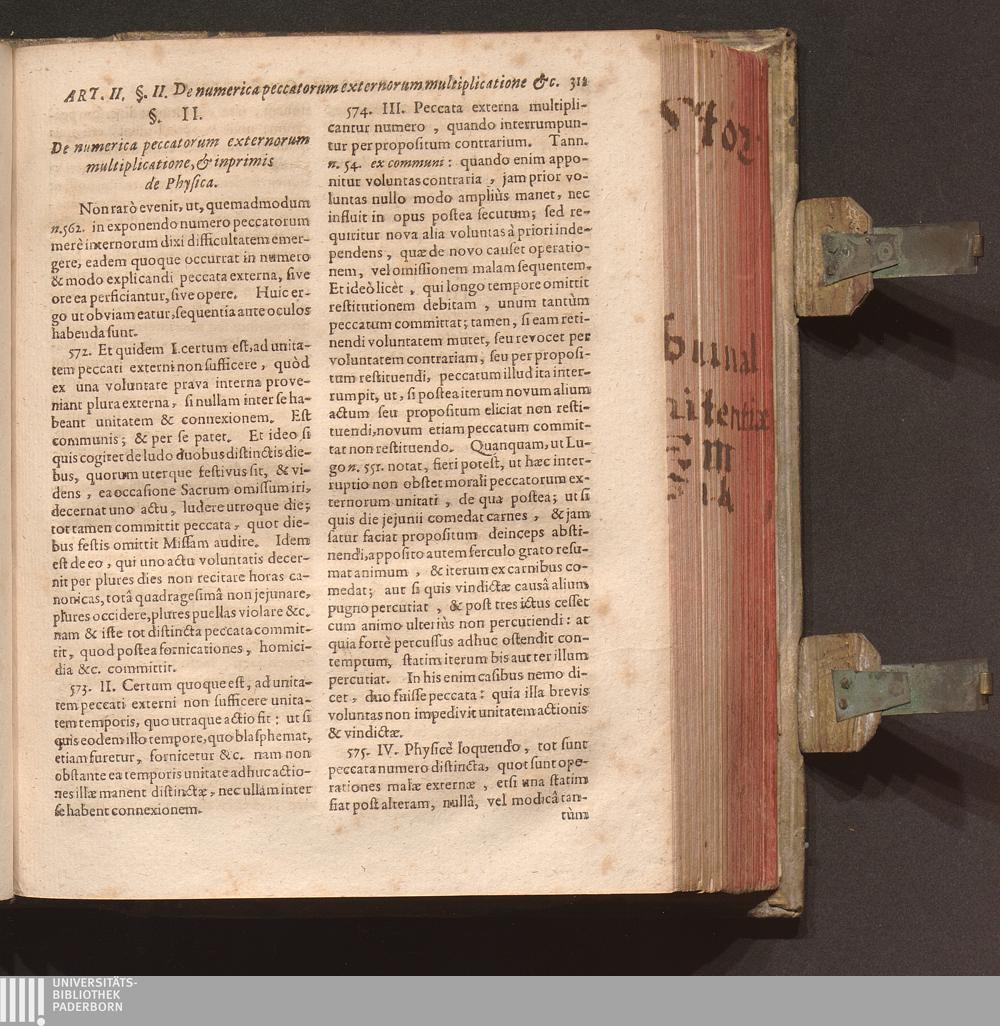 ART. II. §. II. De numerica peccatorum externorum multiplicatione &c. 311
§. II.
De numerica peccatorum externorum
multiplicatione, & inprimis
de Physica.
Non rarò evenit, ut, quemadmodum
n. 562. in exponendo numero peccatorum
merè internorum dixi difficultatem emer-
gere, eadem quoque occurrat in numero
& modo explicandi peccata externa, sive
ore ea perficiantur, sive opere. Huic er-
go ut obviam eatur, sequentia ante oculos
habenda sunt.
572. Et quidem I. certum est, ad unita-
tem peccati externi non sufficere, quòd
ex una voluntate prava interna prove-
niant plura externa, si nullam inter se ha-
beant unitatem & connexionem. Est
communis; & per se patet. Et ideo si
quis cogitet de ludo duobus distinctis die-
bus, quorum uterque festivus sit, & vi-
dens, ea occasione Sacrum omissum iri,
decernat uno actu, ludere utroque die;
tot tamen committit peccata, quot die-
bus festis omittit Missam audire. Idem
est de eo, qui uno actu voluntatis decer-
nit per plures dies non recitare horas ca-
nonicas, totâ quadragesimâ non jejunare,
plures occidere, plures puellas violare &c.
nam & iste tot distincta peccata commit-
tit, quod postea fornicationes, homici-
dia &c. committit.
573. II. Certum quoque est, ad unita-
tem peccati externi non sufficere unita-
tem temporis, quo utraque actio fit: ut si
quis eodem illo tempore, quo blasphemat,
etiam furetur, fornicetur &c. nam non
obstante ea temporis unitate adhuc actio-
nes illæ manent distinctæ, nec ullam inter
se habent connexionem.
574. III. Peccata externa multipli-
cantur numero, quando interrumpun-
tur per propositum contrarium. Tann.
n. 54. ex communi: quando enim appo-
nitur voluntas contraria, jam prior vo-
luntas nullo modo ampliùs manet, nec
influit in opus postea secutum; sed re-
quiritur nova alia voluntas à priori inde-
pendens, quæ de novo causet operatio-
nem, vel omissionem malam sequentem.
Et ideò licèt, qui longo tempore omittit
restitutionem debitam, unum tantùm
peccatum committat; tamen, si eam reti-
nendi voluntatem mutet, seu revocet per
voluntatem contrariam, seu per proposi-
tum restituendi, peccatum illud ita inter-
rumpit, ut, si postea iterum novum alium
actum seu propositum eliciat non resti-
tuendi, novum etiam peccatum commit-
tat non restituendo. Quanquam, ut Lu-
go n. 551. notat, fieri potest, ut hæc inter-
ruptio non obstet morali peccatorum ex-
ternorum unitati, de qua postea; ut si
quis die jejunii comedat carnes, & jam
satur faciat propositum deinceps absti-
nendi, apposito autem ferculo grato resu-
mat animum, & iterum ex carnibus co-
medat; aut si quis vindictæ causâ alium
pugno percutiat, & post tres ictus cesset
cum animo ulteriùs non percutiendi: at
quia fortè percussus adhuc ostendit con-
temptum, statim iterum bis aut ter illum
percutiat. In his enim casibus nemo di-
cet, duo fuisse peccata: quia illa brevis
voluntas non impedivit unitatem actionis
& vindictæ.
575. IV. Physicè loquendo, tot sunt
peccata numero distincta, quot sunt ope-
rationes malæ externæ, etsi una statim
fiat post alteram, nullâ, vel modicâ tan-
tùm
UNIVERSITÄTS-
BIBLIOTHEK
PADERBORN